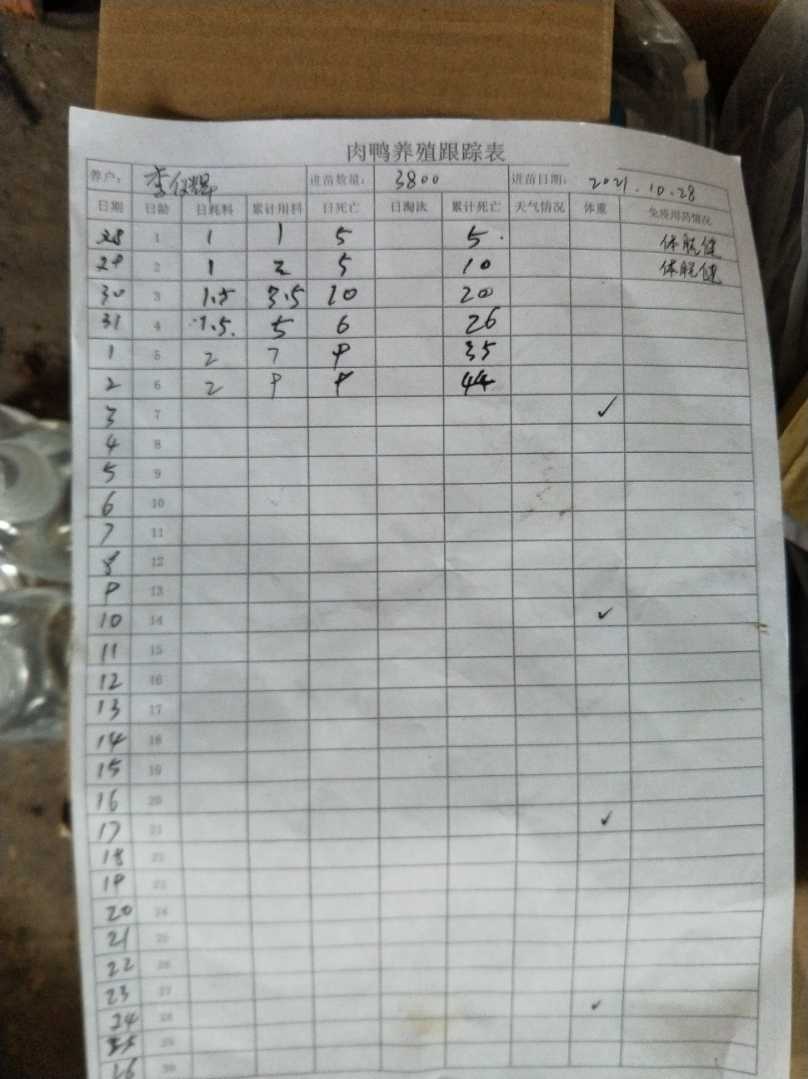 肉鸭养殖跟踪表
养户: 李仪辉 进苗数量: 3800 进苗日期: 2021.10.28
日期 日龄 日耗料 累计用料 日死亡 日淘汰 累计死亡 天气情况 体重 免疫用药情况
28 1 1 1 5 5.
29 2 1 2 5 10
30 3 1.5 3.5 10 20
31 4 1.5. 5 6 26
1 5 2 7 9 35
2 6 2 9 9 44
3 7 ✓
4 8
5 9
6 10
7 11
8 12
9 13
10 14 ✓
11 15
12 16
13 17
14 18
15 19
16 20
17 21 ✓
18 22
19 23
20 24
21 25
22 26
23 27
24 28 ✓
25 29
26 30